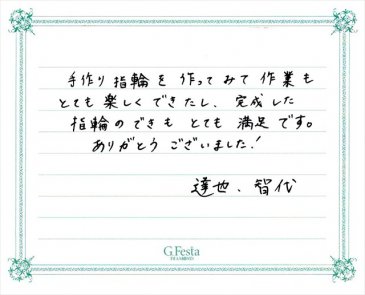 手作り指輪を作ってみて作業も
とても楽しくできたし、完成した
指輪のできもとても満足です。
ありがとうございました!
達也、智代
G.Festa